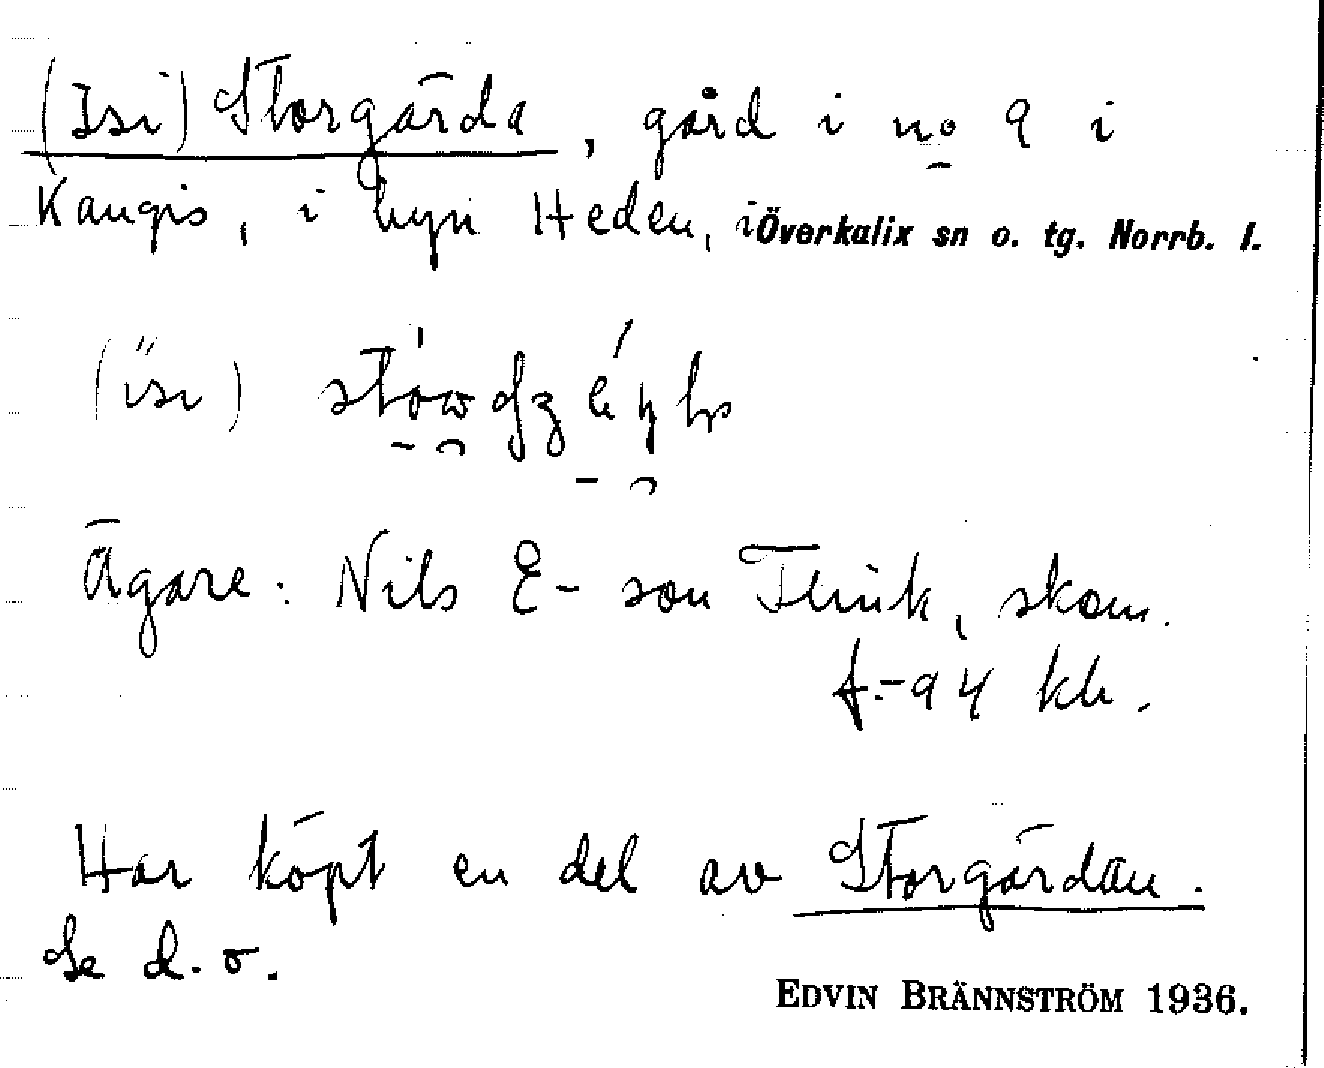 (Isi) Storgärda, gård i no 9 i
Kangis, i byn Heden, i Överkalix sn o. tg. Norrb. l.
(ïsi)
Ägare: Nils E-son Flink, skom.
f.-94 kb.
Har köpt en del av Storgärdan.
Se d. o.
EDVIN BRÄNNSTRÖM 1936.